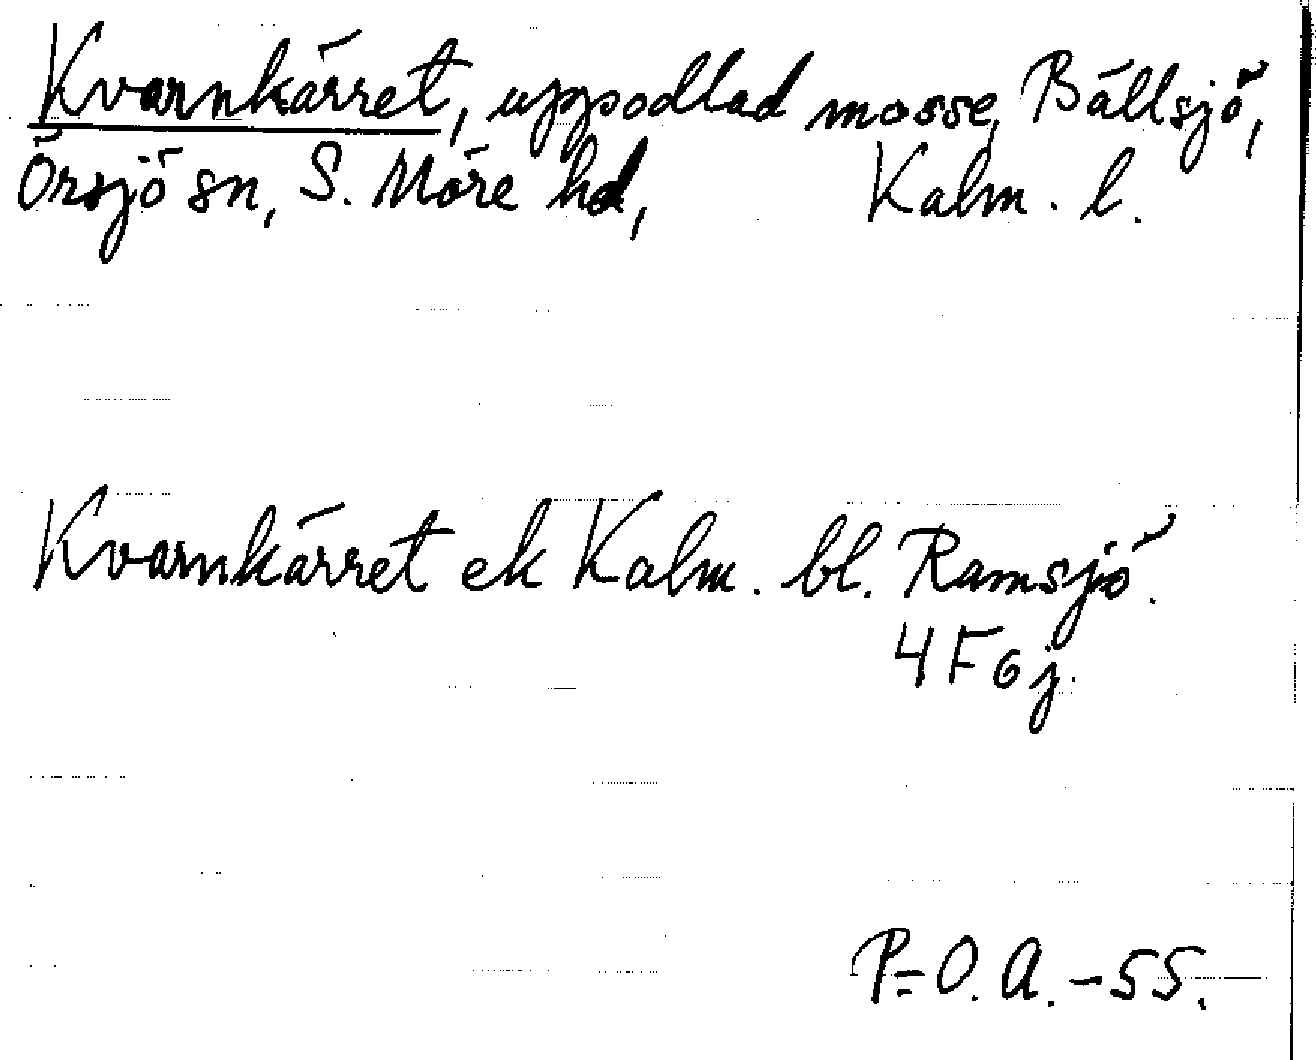 Kvarnkärret, uppodlad mosse, Bällsjö,
Örsjö sn, S. Möre hd, Kalm. l.
Kvarnkärret ek Kalm. bl. Ramsjö.
4 F 6 j.
P-O. A. -55.